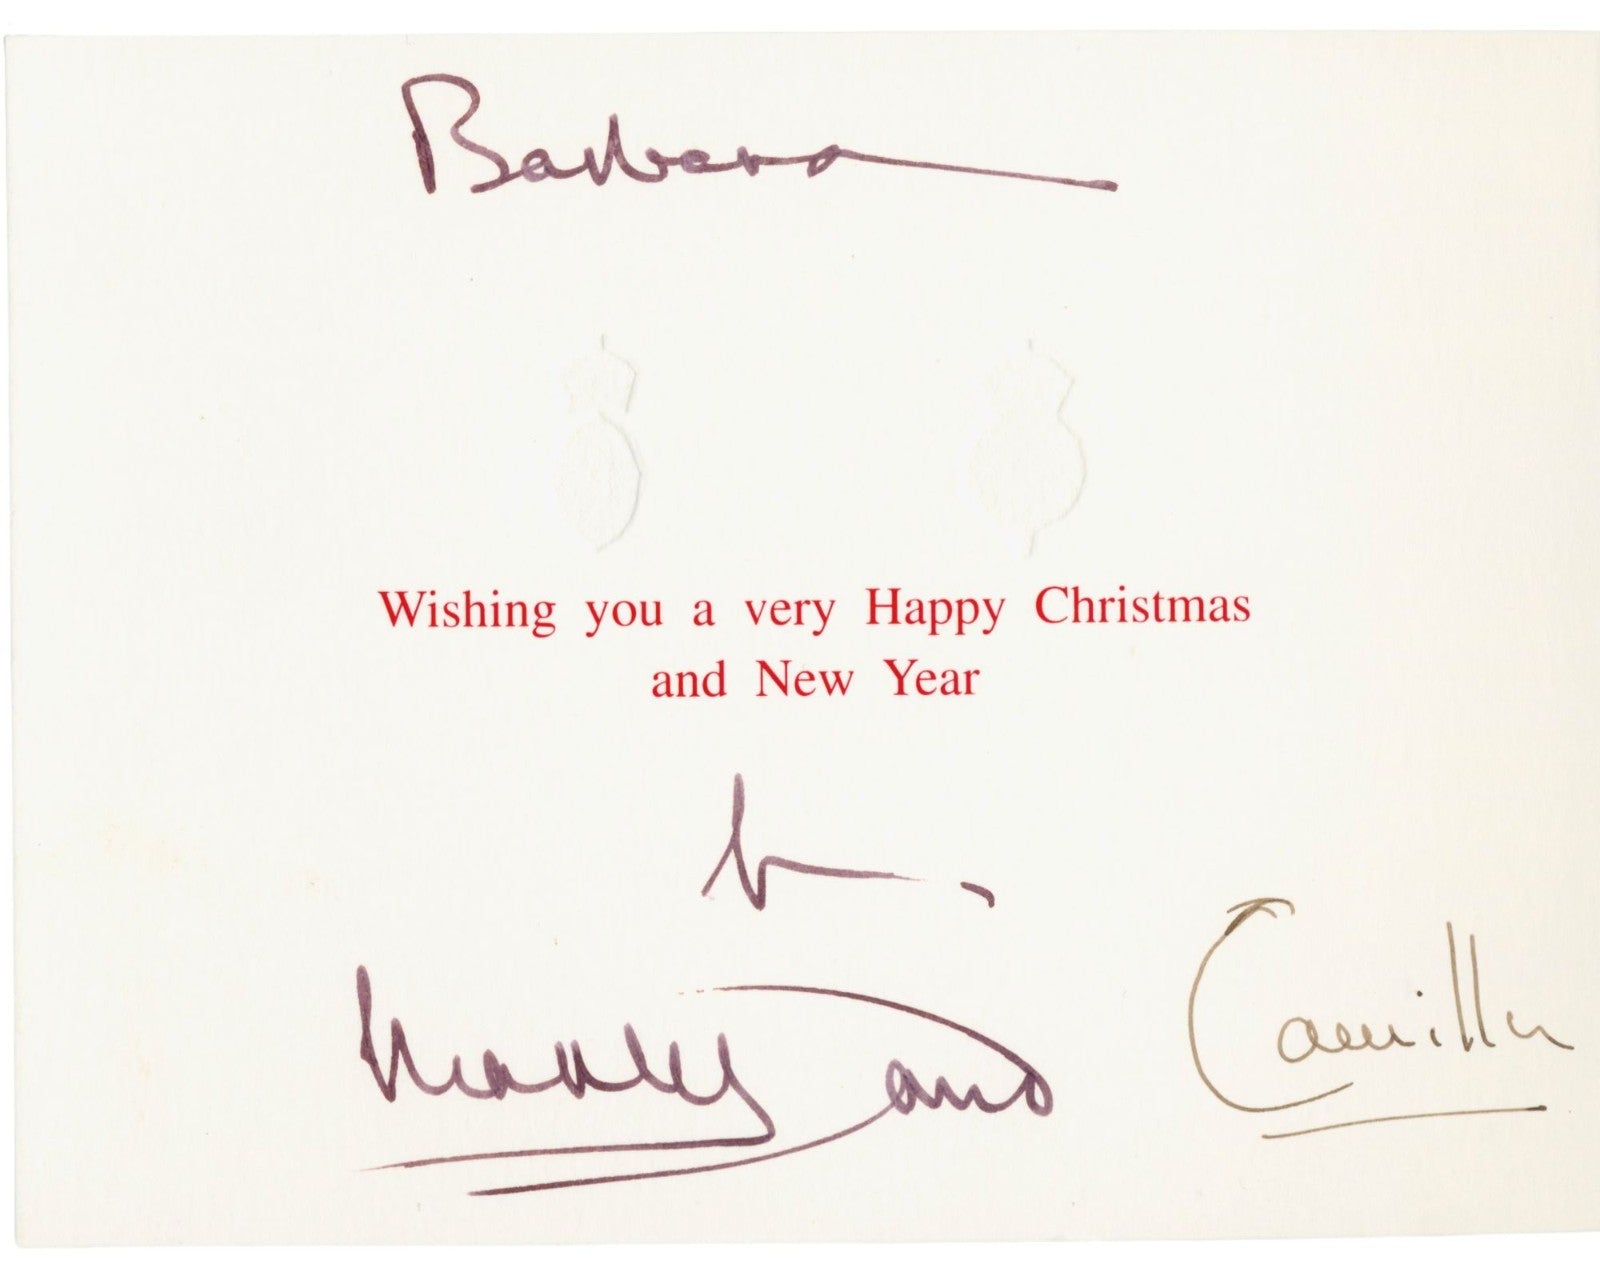 Barbara
Wishing you a very Happy Christmas
and New Year
Charles and Camilla